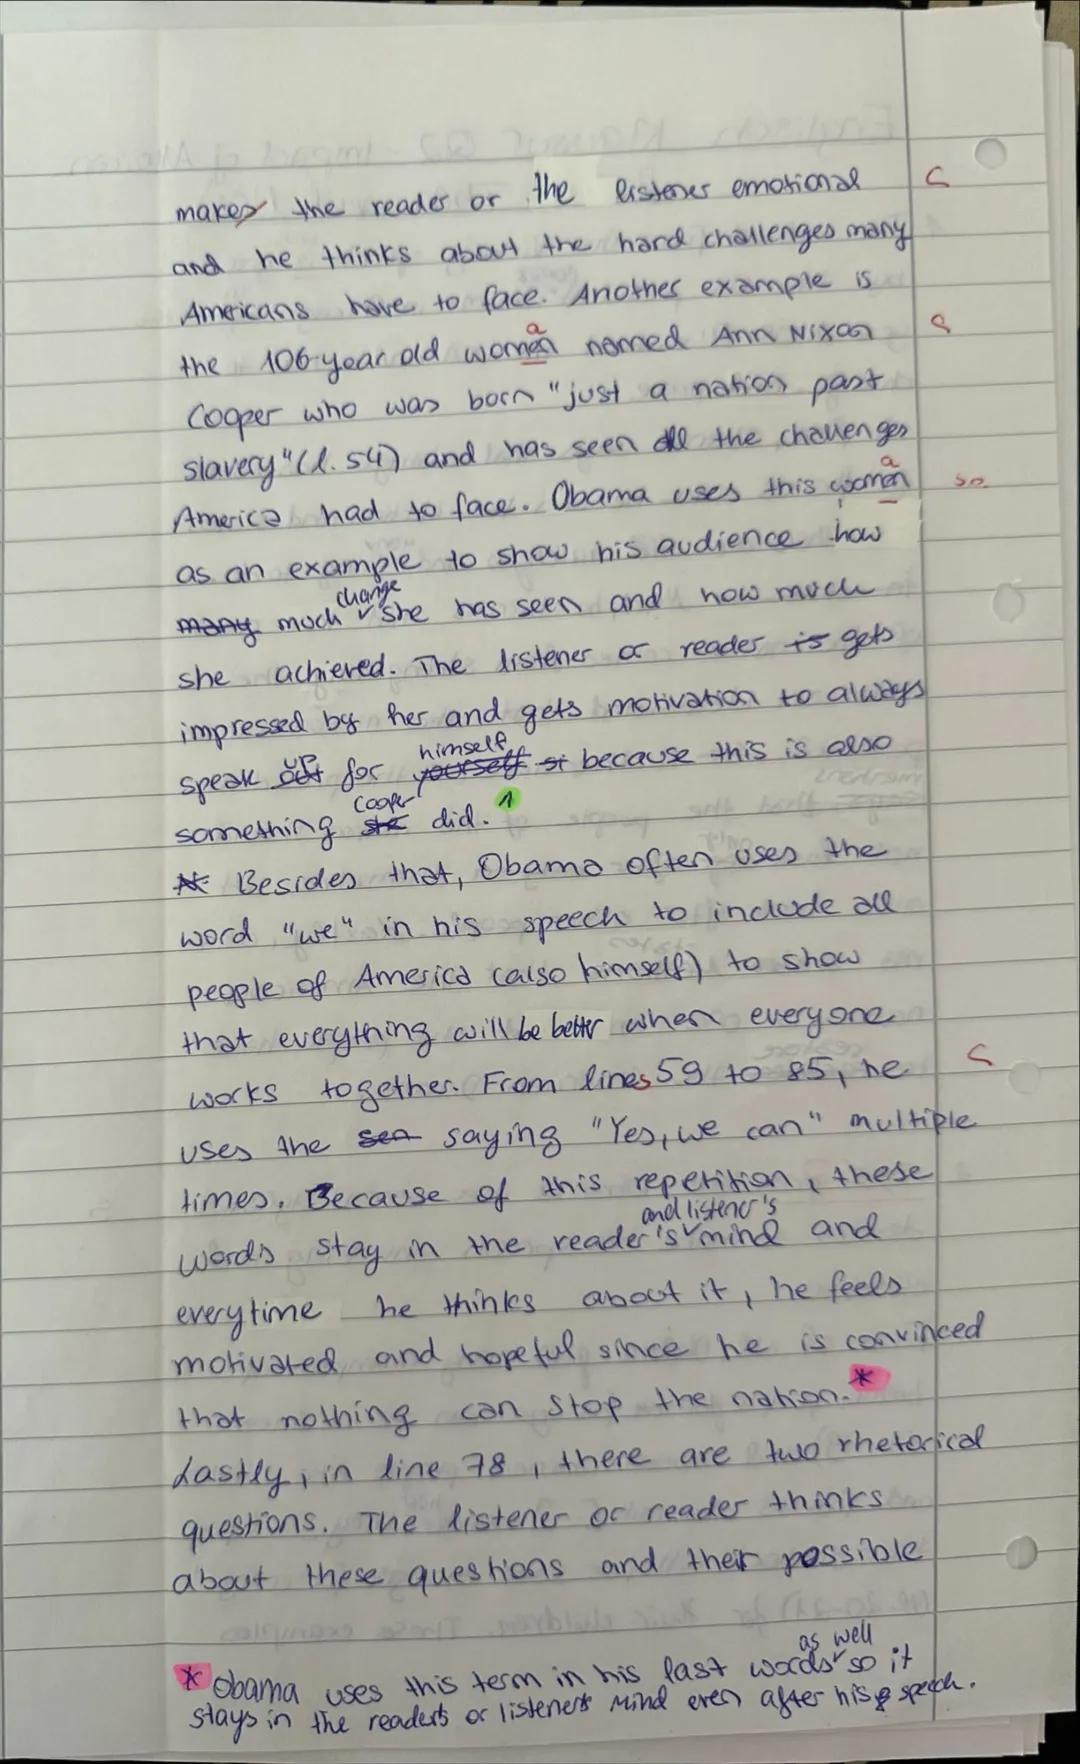 makes the reader or the listener emotional s
and he thinks about the hard challenges many
Americans have to face. Another example is
the 106-year old women a named Ann Nixon s
Cooper who was born "just a nation past
slavery" (l. 54) and has seen all the challenges
America had to face. Obama uses this women a so.
as an example to show his audience how
many much change she has seen and how much
she achieved. The listener or reader is gets
impressed by her and gets motivation to always
speak out up for yourself himself because this is also
something she Cooper did. 1
Besides that, Obama often uses the
word "we" in his speech to include all
people of America (also himself) to show
that everything will be better when everyone
works together. From lines 59 to 85, he s
uses the sen saying "Yes, we can" multiple
times. Because of this repetition, these
words stay in the reader's and listener's mind and
everytime he thinks about it, he feels
motivated and hopeful since he is convinced
that nothing can stop the nation. *
Lastly, in line 78, there are two rhetorical
questions. The listener or reader thinks
about these questions and their possible
* Obama uses this term in his last words as well so it
stays in the readers or listeners mind even after his speech.